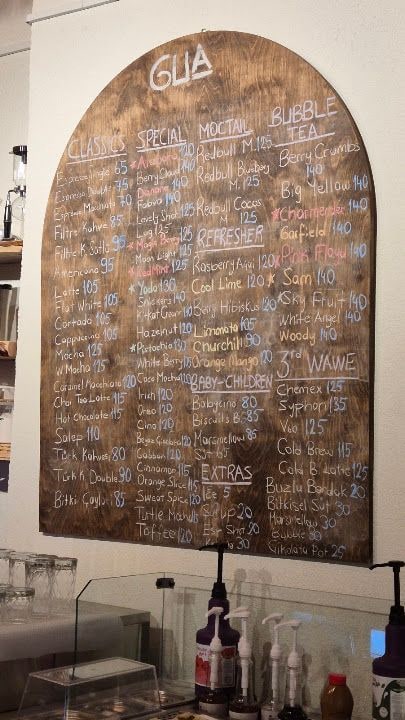 GUA
CLASSICS
Espresso Single 65
Espresso Double 75
Espresso Macchiato 70
Filtre Kahve 85
Filtre K. Sütlü 95
Americano 95
Latte 105
Flat White 105
Cortado 105
Cappuccino 105
Mocha 125
W Mocha 125
Caramel Macchiato 120
Chai Tea Latte 115
Hot Chocolate 115
Salep 110
Türk Kahvesi 80
Türk K. Double 90
Bitki Çayları 85
SPECIAL
Berry Cloud 140
140
Lovely Shot 125
125
Magic Berry
Moon Light 125
Red Mint 125
Yoda 130
Snickers 140
Kitkat Cream 140
Hazelnut 120
Pistachio 130
White Berry 135
Coco Mocha 130
Irish 120
Oreo 120
120
120
Cinnamon 115
Orange Slice 115
Sweat Spice 120
Turtle
Toffee 120
MOCTAIL
Redbull M. 125
Redbull Blueberry
M. 125
Redbull Cocos
M 125
REFRESHER
Rasberry Acai 120
Cool Lime 120
Berry Hibiskus 120
Limonata 105
Churchill 90
Orange Mango 120
BABY-CHILDREN
Babycino 80
Biscuits B. 85
Marsmellow
Süt 65
EXTRAS
Ice 5
Şurup 20
Esp. Shot 30
30
BUBBLE
TEA
Berry Crumbs
140
Big Yellow 140
Charmender 140
Garfield 140
Pink Floyd 140
Sam 140
Sky Fruit 140
White Angel 140
Woody 140
3rd WAWE
Chemex 125
Syphon 135
V60 125
Cold Brew 115
Cold B Latte 125
Buzlu Bardak 20
Bitkisel Süt 30
Marsmellow 30
Bubble 30
Çikolata Pot 25